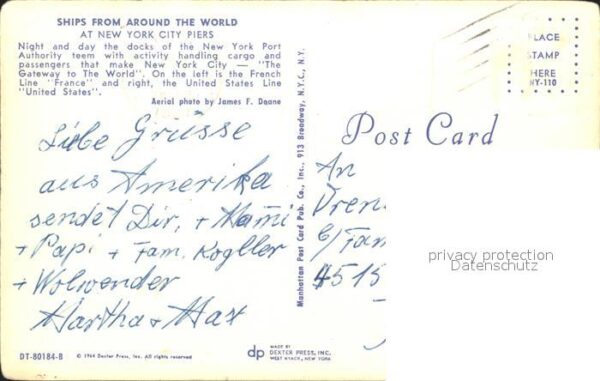 SHIPS FROM AROUND THE WORLD
AT NEW YORK CITY PIERS
Night and day the docks of the New York Port
Authority teem with activity handling cargo and
passengers that make New York City — "The
Gateway to The World". On the left is the French
Line "France" and right, the United States Line
"United States".
Aerial photo by James F. Doane
Liebe Grüsse
aus Amerika
sendet Dir, + Mami
+ Papi + Fam. Kogller
+ Wolwender
Martha + Max
DT-80184-B
© 1964 Dexter Press, Inc. All rights reserved
dp
MADE BY
DEXTER PRESS, INC.
WEST NYACK, NEW YORK
Manhattan Post Card Pub. Co., Inc., 913 Broadway, N.Y.C., N.Y.
Post Card
PLACE
STAMP
HERE
NY-110
An
Vren
c/Fam
4515
privacy protection
Datenschutz